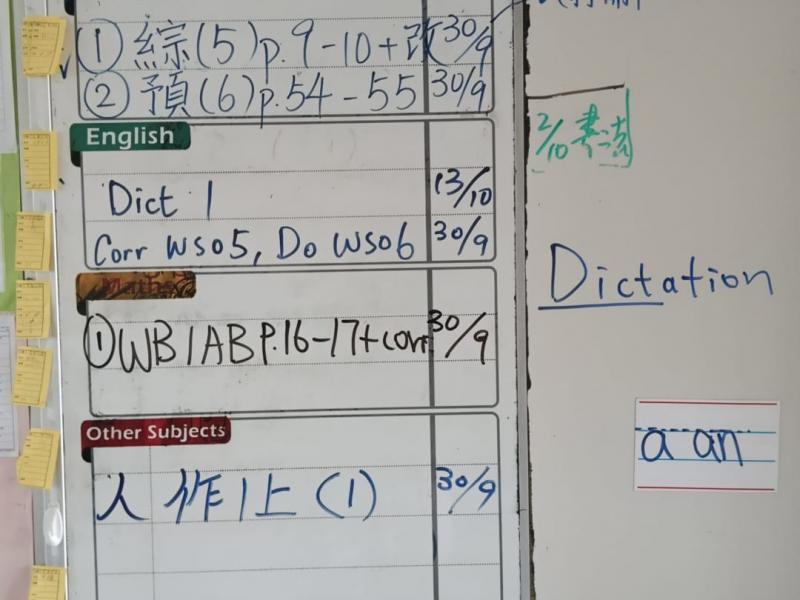 ① 綜(5)p.9-10+改 30/9
② 預(6)p.54-55 30/9
English
Dict 1 13/10
Corr WS05, Do WS06 30/9
Maths
① WB1AB P.16-17+corr 30/9
Other Subjects
人 作1上(1) 30/9
2/10 書法
Dictation
a an